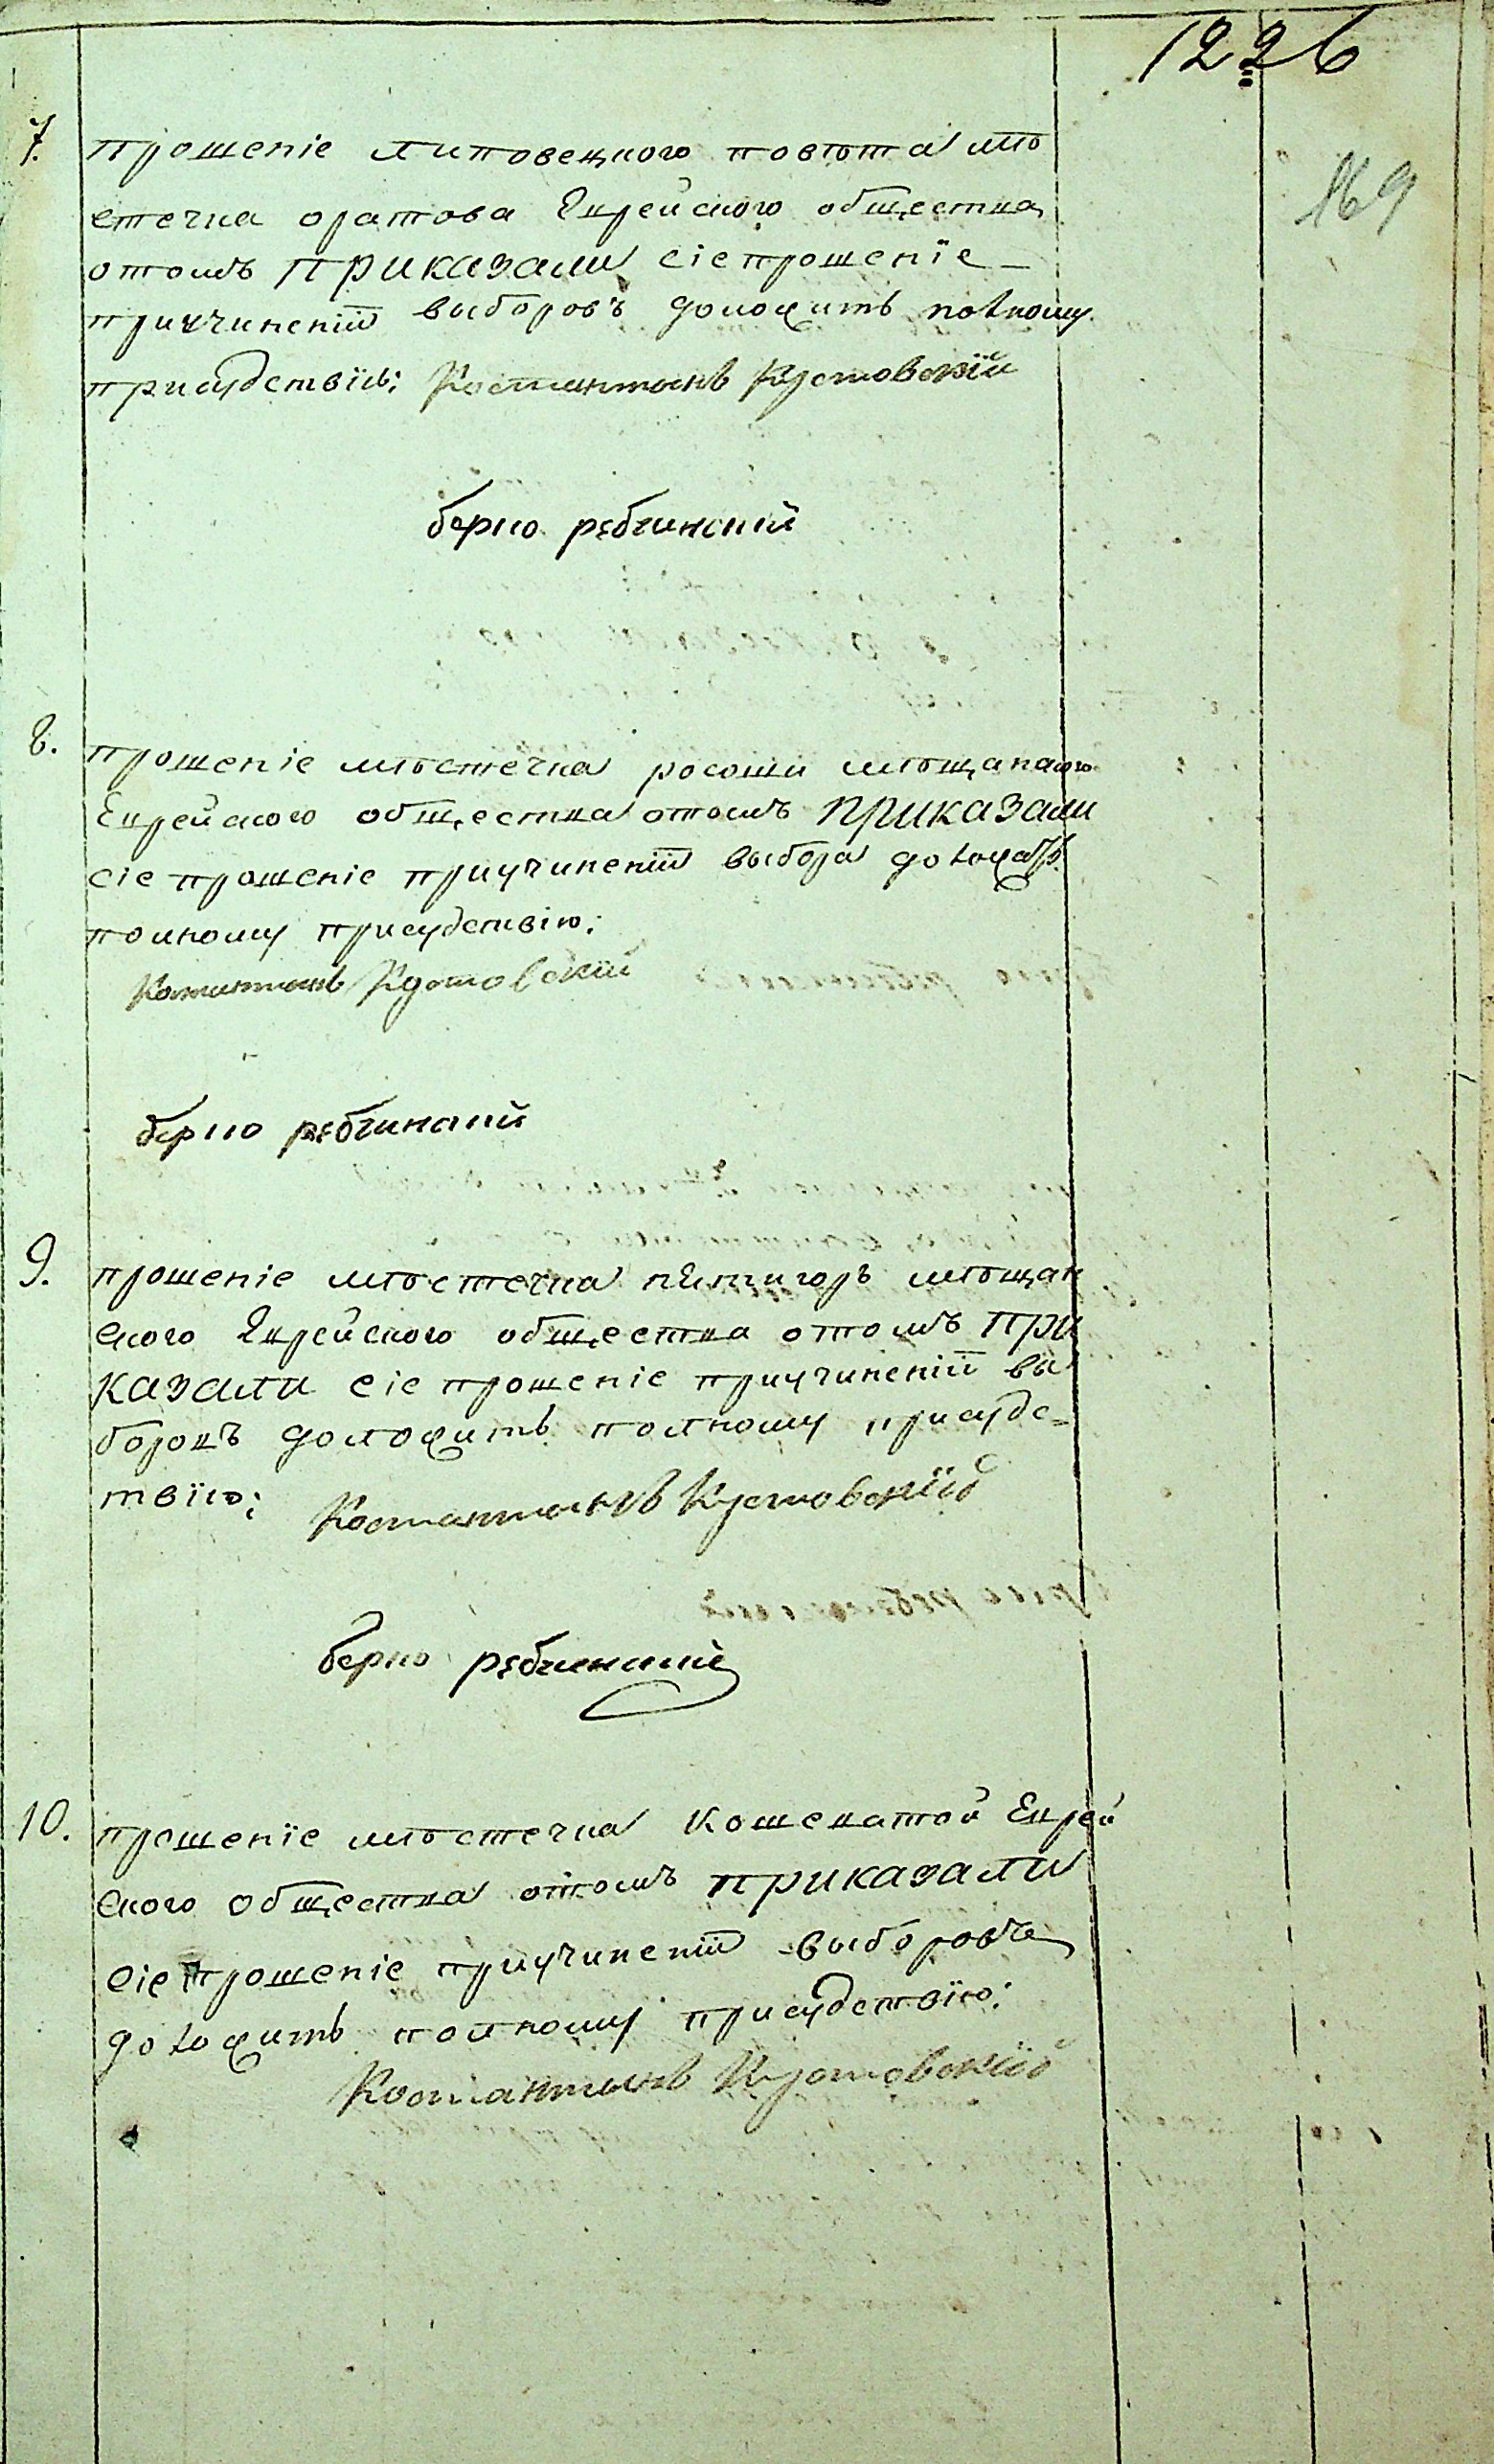 1226
169
7. прошеніе липовецкого повѣта мѣ
стечка оратова Еврейского общества
отомъ приказали сіе прошеніе
приучиненіи выборовъ доложить полному
присудствїю: Костантынъ Кустовскїй
берко рябчинский
8. прошеніе мѣстечка росоши мѣщанского
Еврейского общества отомъ приказали
сіе прошеніе приучиненіи выбора доложить
полному присудствію:
Костантынъ Кустовскїй
берко рябчинский
9. прошеніе мѣстечка пятигоръ мѣщан
ского Еврейского общества отомъ при
казали сіе прошеніе приучиненіи вы
боровъ доложить полному присудс=
твїю: Костантынъ Кустовскїй
берко рябчинский
10. прошенїе мѣстечка Кошеватой Еврей
ского общества отомъ приказали
сіе прошеніе приучиненіи выборовъ
доложить полному присудствїю:
Костантынъ Кустовскїй